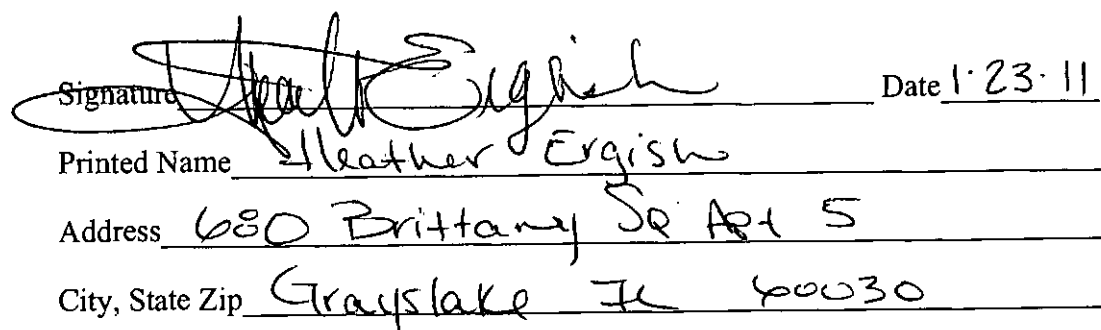 Signature Heather Ergish Date 1·23·11
Printed Name Heather Ergish
Address 680 Brittany Sq Apt 5
City, State Zip Grayslake IL 60030